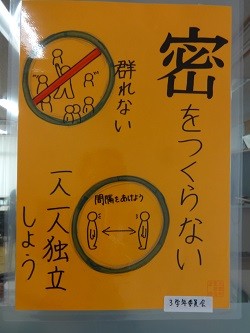 密をつくらない
群れない
間隔をあけよう
一人一人独立
しよう
3学年委員会